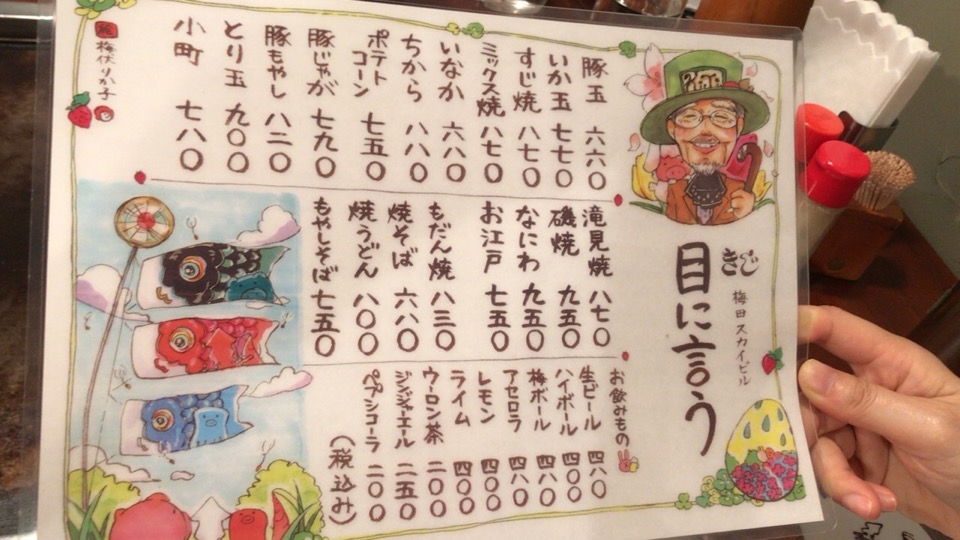 きじ
梅田スカイビル
目に言う
豚玉 六六〇
いか玉 七七〇
すじ焼 八七〇
ミックス焼 八七〇
いなか 六八〇
ちから 八八〇
ポテトコーン 七五〇
豚じゃが 七九〇
豚もやし 八二〇
とり玉 九〇〇
小町 七八〇
滝見焼 八七〇
磯焼 九五〇
なにわ 九五〇
お江戸 七五〇
もだん焼 八三〇
焼そば 六八〇
焼うどん 八〇〇
もやしそば 七五〇
お飲みもの
生ビール 四八〇
ハイボール 四〇〇
梅ボール 四八〇
アセロラ 四八〇
レモン 四〇〇
ライム 四〇〇
ウーロン茶 二〇〇
ジンジャーエール 二五〇
ペプシコーラ 二〇〇
(税込み)